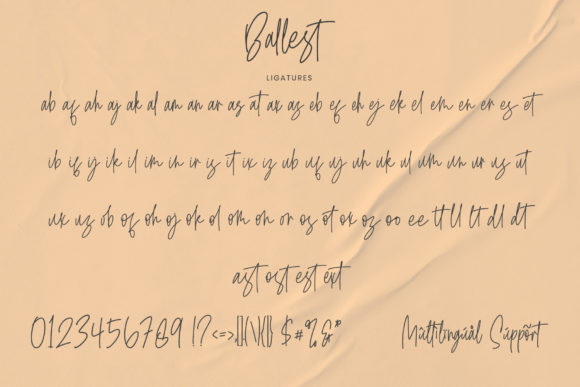 Ballest
LIGATURES
ab af ah aj ak al am an ar as at ax as eb ef eh ej ek el em en er es et
ib if ij ik il im in ir is it ix iz ub uf uj uh uk ul um un ur us ut
ux uz ob of oh oj ok ol om on or os ot ox oz oo ee tt ll lt dl dt
ast ost est ext
0123456789 !? <=> $#%&*
Mùltilingúål Súppõrt